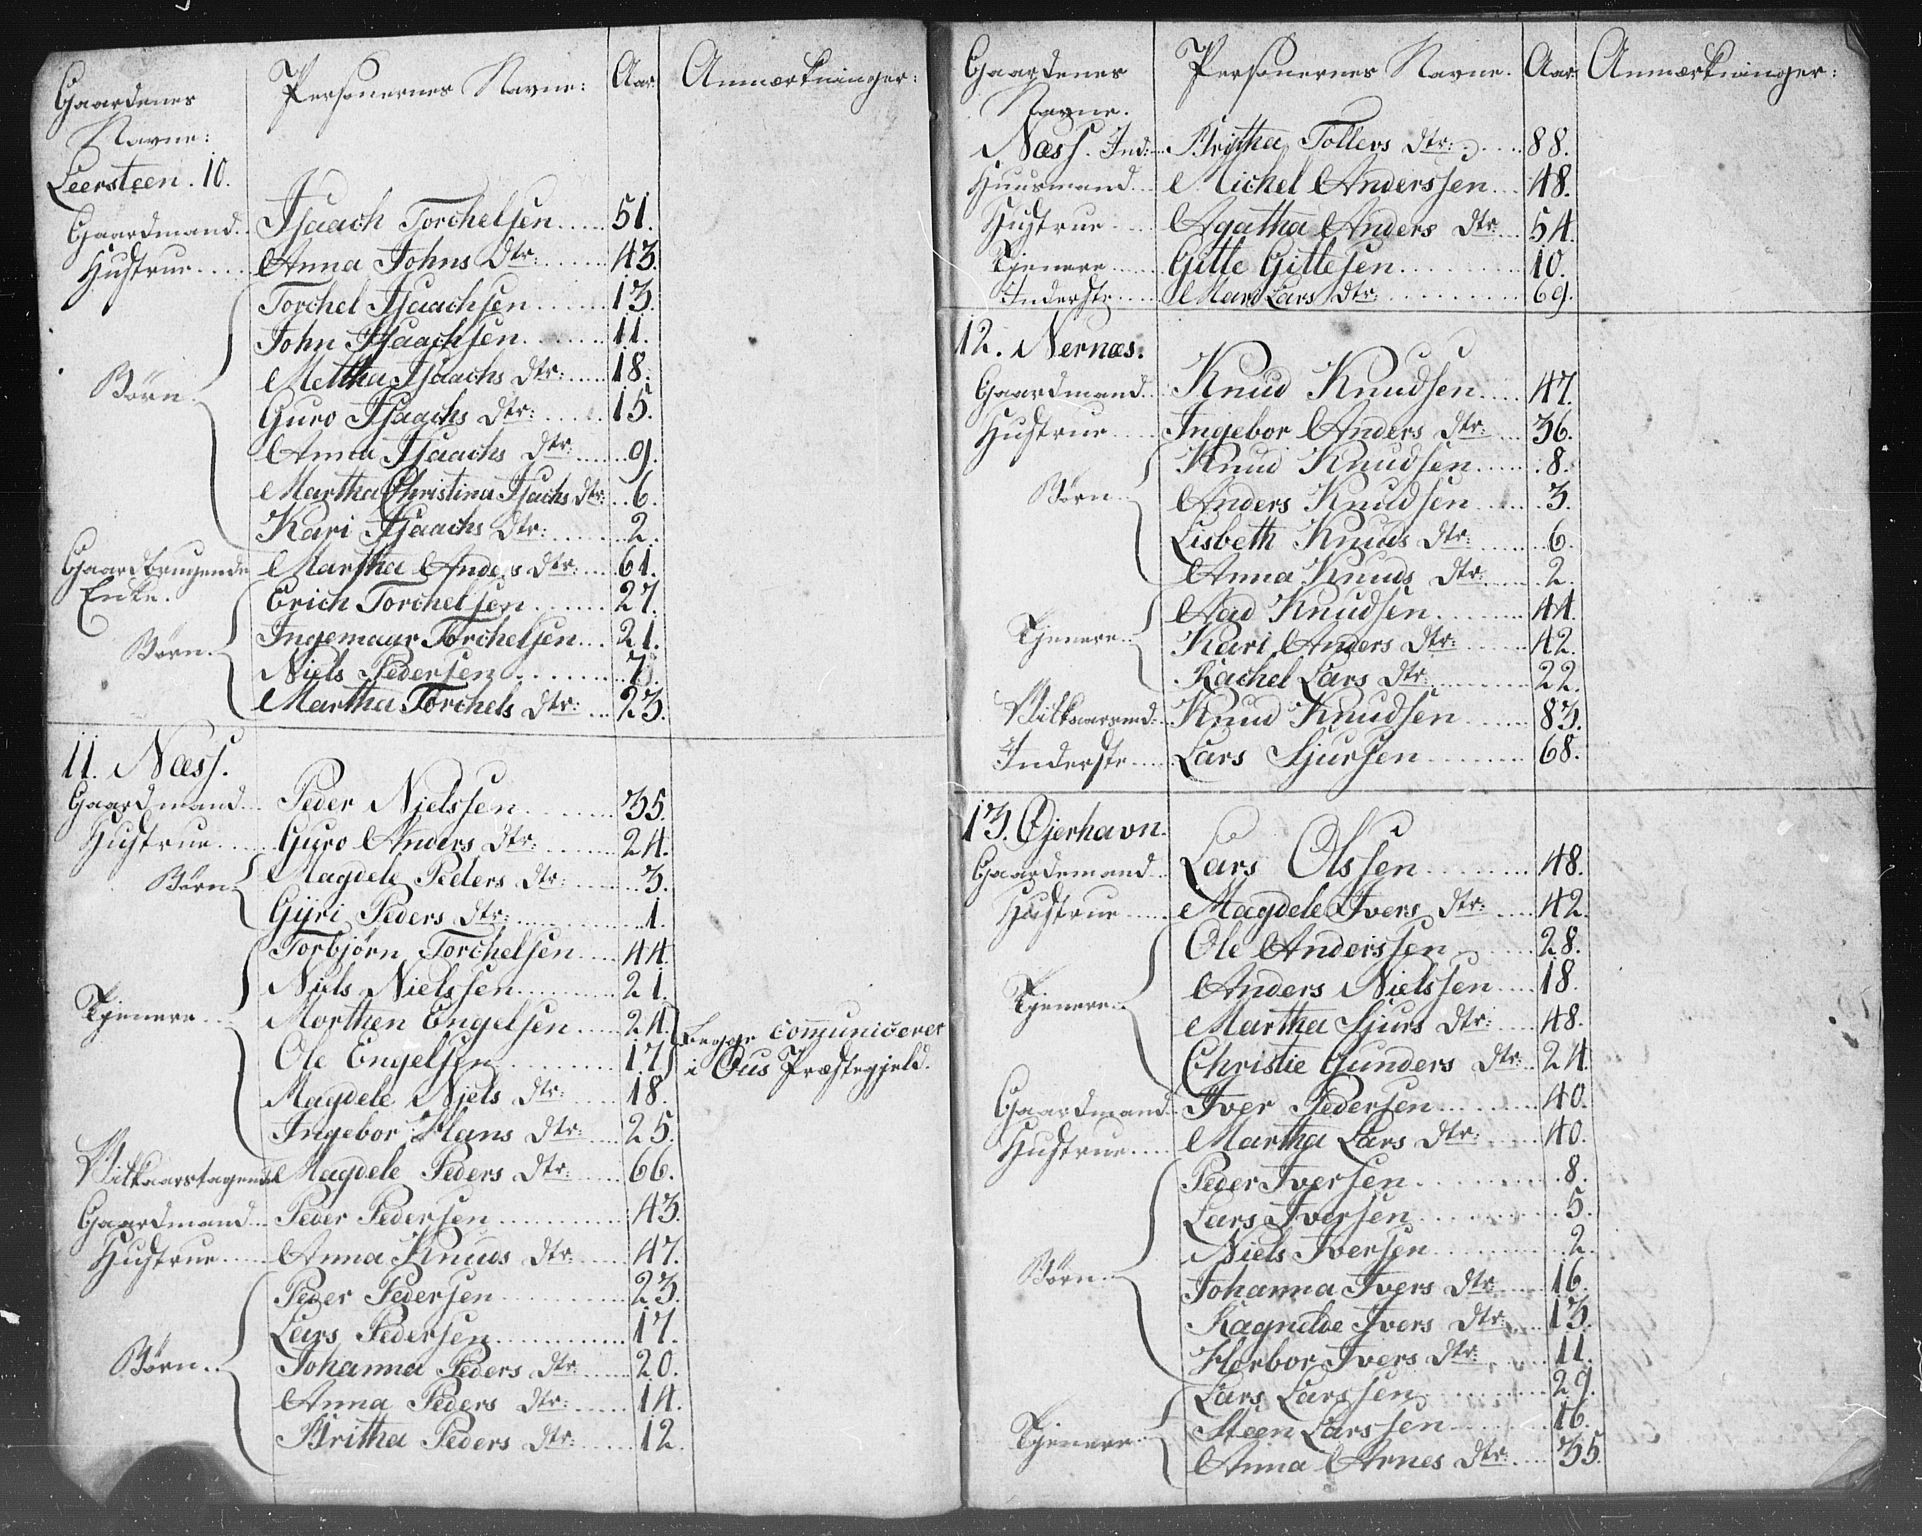 Gaardenes
Navne:
Personernes Navne:
Aar
Anmærkninger:
Leersteen. 10.
Gaardmand... Isaach Torchelsen..... 51.
Hustrue..... Anna Johns Dtr:....... 43.
Torchel Isaachsen........ 13.
John Isaachsen........ 11.
Børn. Mettha Isaachs Dtr:..... 18.
Guro Isaachs Dtr:..... 15.
Anna Isaachs Dtr:...... 9.
Martha Christina Isachs Dtr:.. 6.
Kari Isaachs Dtr:....... 2.
Gaardbrugende Martha Anders Dtr:.... 61.
Enke.
Erich Torchelsen....... 27.
Børn. Ingemaur Torchelsen... 21.
Niels Pedersen......... 7.
Martha Torchels Dtr:... 23.
11. Næss.
Gaardmand... Peder Nielssen........ 35.
Hustrue..... Guro Anders Dtr:....... 24.
Børn. Magdele Peders Dtr:...... 3.
Gyri Peders Dtr:......... 1.
Torbjørn Torchelsen.... 44.
Niels Nielssen......... 21.
Tjenere... Morthen Engelsen.... 24. Begge communicerer
Ole Engelsen......... 17. i Ous Præstegjeld.
Magdele Niels Dtr:..... 18.
Ingebor Hans Dtr:..... 25.
Vilkaarstagende Magdele Peders Dtr:..... 66.
Gaardmand... Peder Pedersen......... 43.
Hustrue..... Anna Knuds Dtr:..... 47.
Peder Pedersen......... 23.
Lars Pedersen......... 17.
Børn... Johanna Peders Dtr:..... 20.
Anna Peders Dtr:..... 14.
Britha Peders Dtr:..... 12.
Gaardenes
Navne.
Personernes Navne.
Aar
Anmærkninger:
Næss. Ind:... Britha Tollevs Dtr:..... 88.
Huusmand... Michel Anderssen... 48.
Hustrue..... Agatha Anders Dtr.... 54.
Tjenere...... Gitle Gitlesen......... 10.
Inderste..... Mari Lars Dtr:......... 69.
12. Nernæs.
Gaardmand... Knud Knudsen..... 47.
Hustrue..... Ingebor Anders Dtr:... 36.
Knud Knudsen....... 8.
Børn... Anders Knudsen....... 3.
Lisbeth Knuds Dtr:....... 6.
Anna Knuds Dtr:....... 2.
Aad Knudsen........ 44.
Tjenere... Kari Anders Dtr:....... 42.
Rachel Lars Dtr:....... 22.
Vilkaarsmd:.. Knud Knudsen...... 83.
Inderste..... Lars Sjursen......... 68.
13. Øjerhavn.
Gaardmand... Lars Olssen......... 48.
Hustrue..... Magdele Ivers Dtr:..... 42.
Ole Anderssen....... 28.
Anders Nielssen.... 18.
Tjenere... Martha Sjurs Dtr:..... 48.
Christie Gunders Dtr:.. 24.
Gaardmand.. Iver Pedersen......... 40.
Hustrue..... Martha Lars Dtr:..... 40.
Peder Iversen......... 8.
Lars Iversen......... 5.
Niels Iversen......... 2.
Børn... Johanna Ivers Dtr:.... 16.
Ragnilde Ivers Dtr:.... 13.
Herbor Ivers Dtr:..... 11.
Lars Larssen......... 29.
Tjenere... Steen Larssen......... 16.
Anna Arnes Dtr:..... 35.